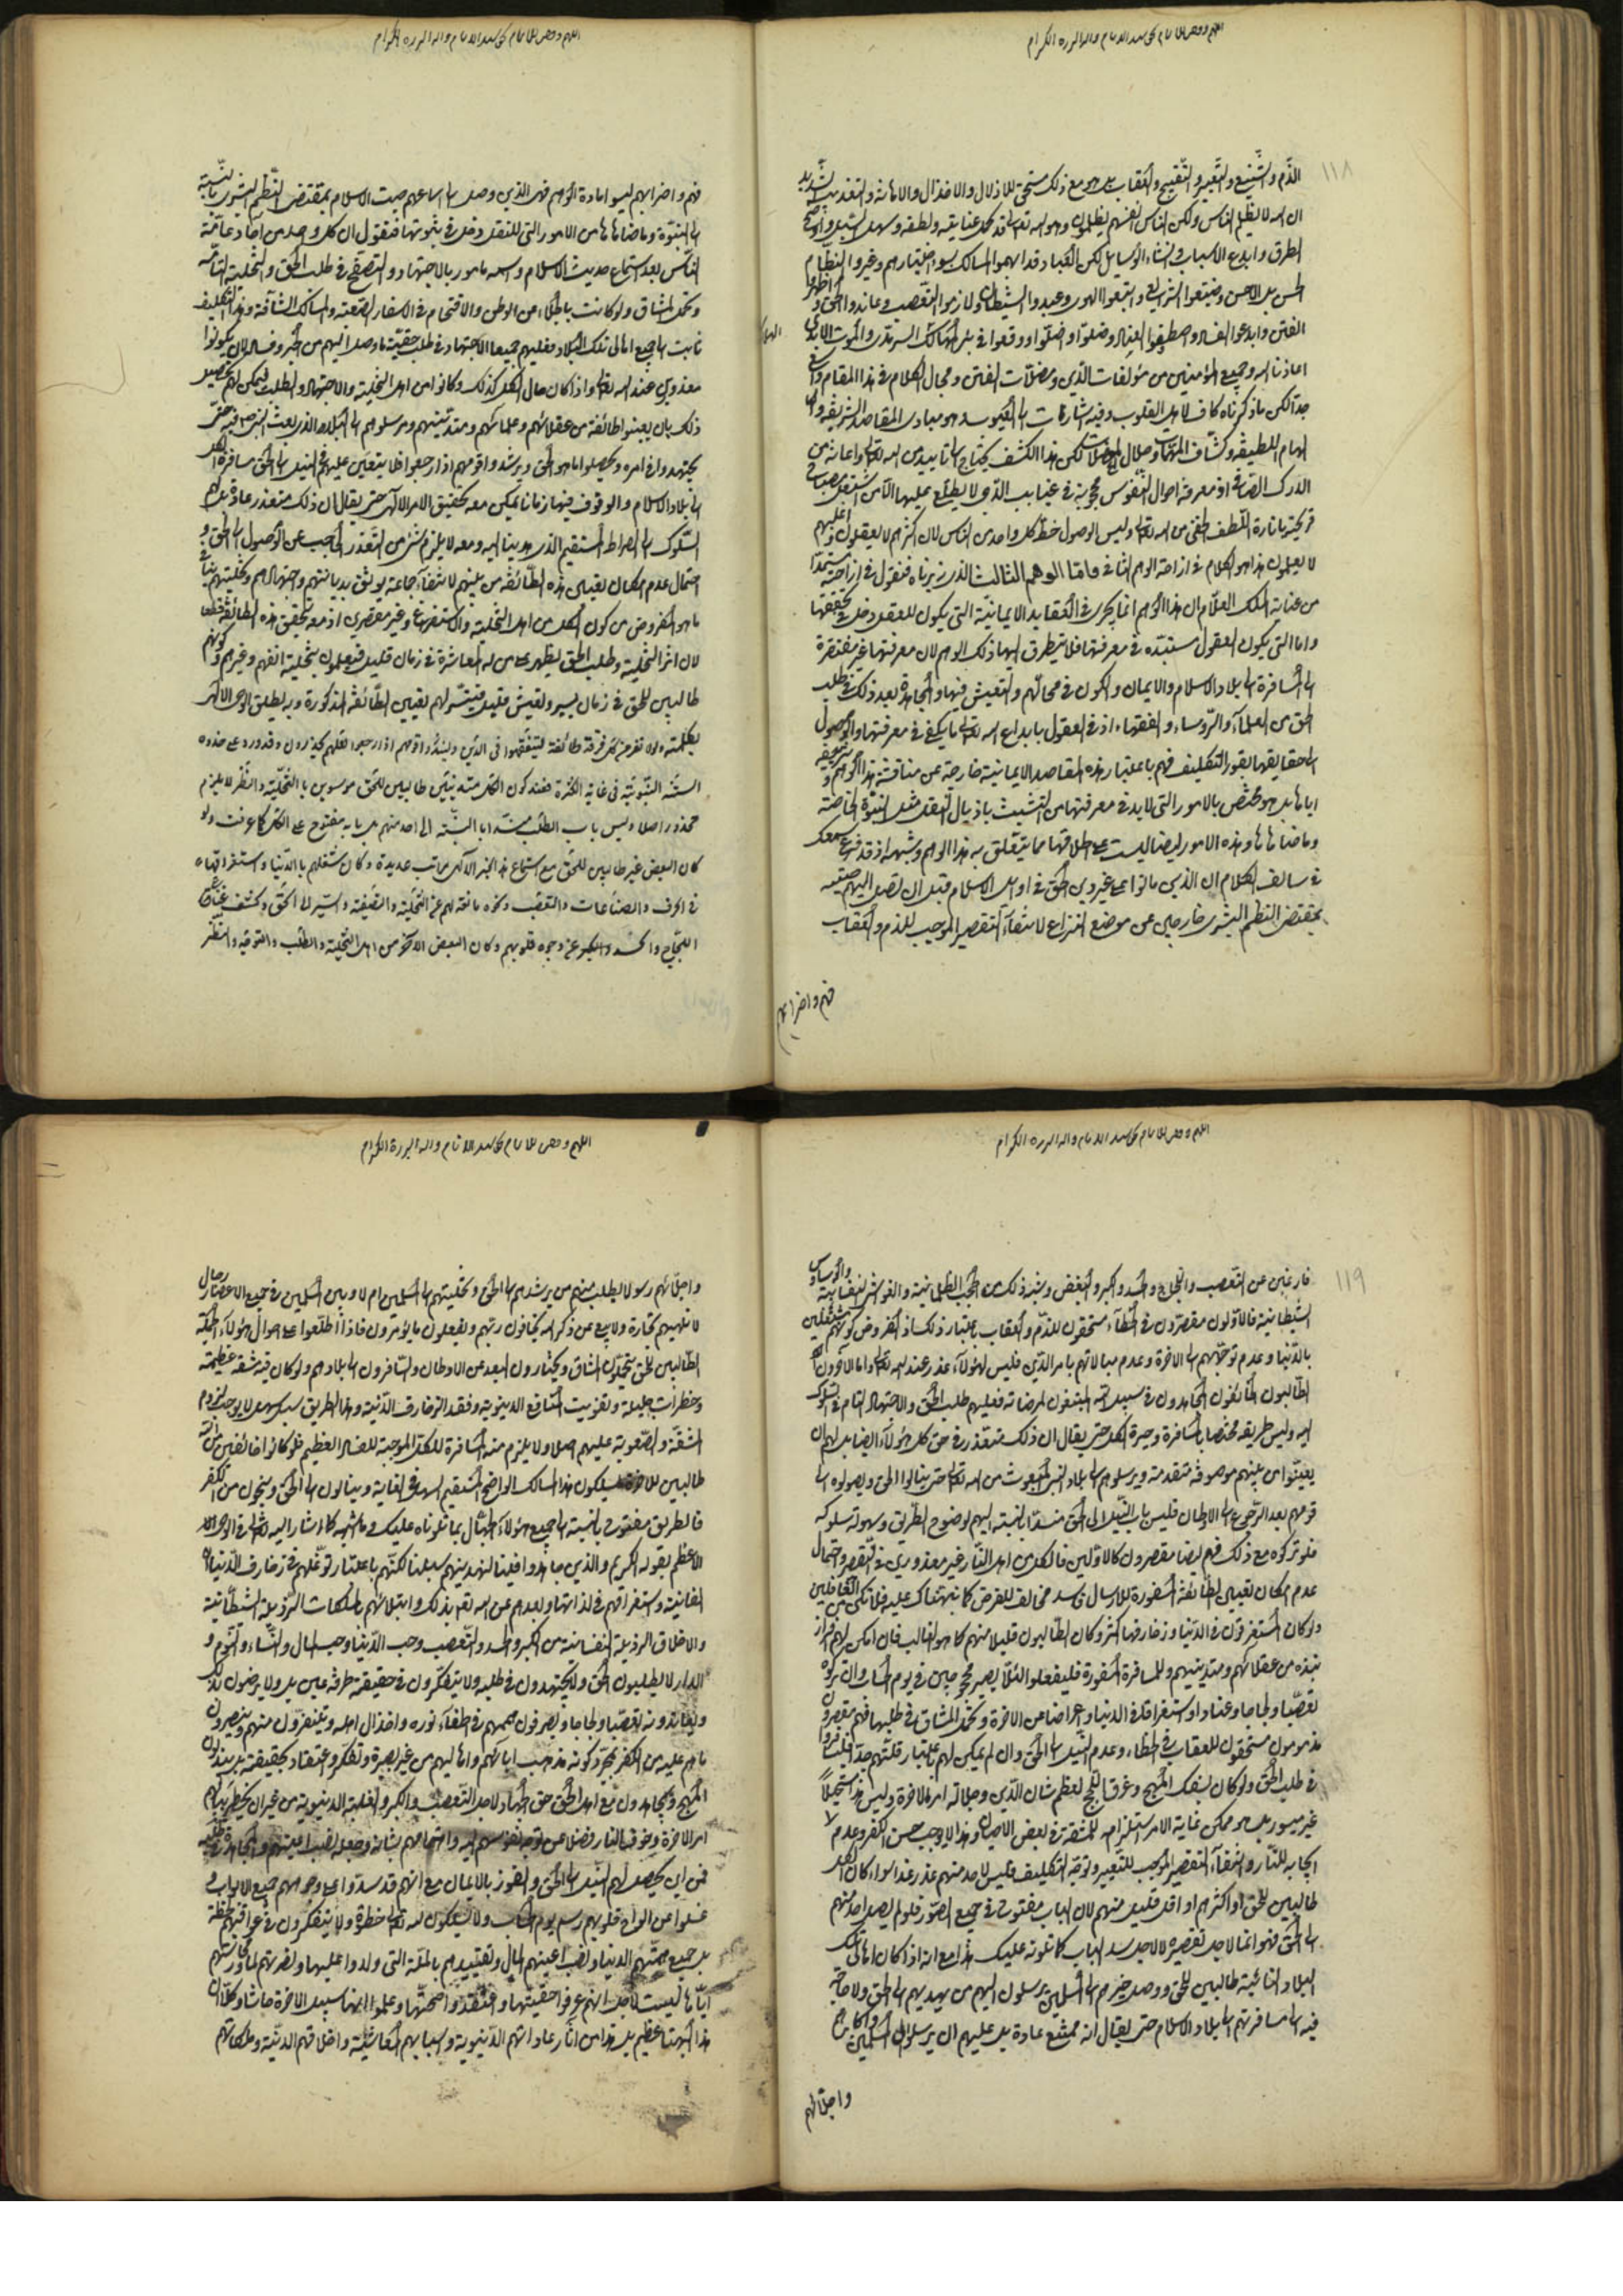 اللهم وفقني للاتمام بحق سيد الانام واله البررة الكرام
١١٨
الذّم والتشنيع والتعيير والتقبيح والعقاب بل هو مع ذلك مستحق للاذلال والاخذال والاهانة والتعذيب الشديد
ان الله لا يظلم الناس ولكن الناس انفسهم يظلمون وهو الله تعالى قد كمل عنايته ولطفه وسهل السبيل واوضح
الطرق وابدع الاسباب وانشاء الوسايل لكن العباد قد ابهموا المسالك بسوء اختيارهم وغيروا النظام
الحسن بل الاحسن وضيعوا الشرايع واتبعوا الهوى وعبدوا الشيطان ولازموا التعصب وعاندوا الحق واظهروا
الفتن وابدعوا الفساد واصطفوا العناد وضلوا واضلوا ووقعوا في بئر الهالك السرمدى والموت الابدى
اعاذنا الله وجميع المؤمنين من مؤلفات الدين ومضلات الفتن ومجال الكلام في هذا المقام واسع
جدا لكن ما ذكرناه كاف لاهل القلوب وفيه اشارات الى الغيوب وهو مبادى المقاصد الشريفة
لكن هذا الكشف يحتاج الى تاييد من الله تعالى واعانة من
الدرك الصافى اذ معرفة احوال النفوس محجوبة في غيابب الدجى لا يطلع عليها الا من اشتعل مصباح
قريحته بانارة اللطف الخفى من الله تعالى وليس الوصول حظ كل واحد من الناس لان اكثرهم لا يعقلون واغلبهم
لا يعلمون هذا هو الكلام في ازاحة الوهم الثانى واما الوهم الثالث الذى زبرناه فنقول في ازاحته مستمدا
من عناية الملك العلام ان هذا الوهم انما يجرى في العقايد الايمانية التى يكون للعقل دخل في تحققها
واما التى يكون العقول مستبدّه في معرفتها فلا يتطرق اليها ذلك الوهم لان معرفتها غير مفتقرة
الى المسافرة الى بلاد الاسلام والايمان والكون في محالهم والتعيش فيها والمجاهدة بعد ذلك في طلب
الحق من العلماء والروساء والفقهاء اذ في العقول بابداع الله تعالى ما يكفى في معرفتها والوصول
الى حقايقها بقدر التكليف فهم باعتبار هذه المقاصد الايمانية خارجة عن مناقشة هذا الوهم
اياها بل هو مختص بالامور التى لا بد في معرفتها من التشبث باذيال النقل مثل النبوة الخاصة
وما ضاهاها وهذه الامور ايضا ليست على اطلاقها مما يتعلق به هذا الوهم وشبهه اذ قد قرع سمعك
في سالف الكلام ان الذين ماتوا على غير دين الحق في اوايل الاسلام قبل ان تصل اليهم صيته
بمقتضى النظم البشرى خارجين عن موضع النزاع لانتفاء التقصير الموجب للذم والعقاب
فهم واضرابهم
اللهم وفقني للاتمام بحق سيد الانام واله البررة الكرام
فهم واضرابهم ليسوا مادة الوهم فهى الذين وصل الى اسماعهم صيت الاسلام بمقتضى النظم البشرى بالنسبة
الى النبوة وما ضاهاها من الامور التى للنقل دخل في ثبوتها فنقول ان كل واحد من آحاد عامة
الناس بعد استماع حديث الاسلام واسمه مامور بالاجتهاد والتصفح في طلب الحق والتخلية التامة
وتحمل المشاق ولو كانت بالجلاء من الوطن والاقتحام في الاسفار الصعبة والمسالك الشاقة وهذا التكليف
ثابت الى جميع اهالى تلك البلاد فعليهم جميعا الاجتهاد في طلب حقية ما وصل اليهم من الخبر وفساده لان يكونوا
معذورين عند الله تعالى واذا كان حال الكل كذلك وكانوا من اهل التخلية والاجتهاد والطلب فيمكن لهم تحصيل
ذلك بان يعينوا طائفة من عقلائهم وعلمائهم ومتدينيهم ويرسلوهم الى البلاد الذى بعث النبى ص فيه حتى
يجتهدوا في امره ويحصلوا ما هو الحق ويرشدوا قومهم اذا رجعوا فلا يتعين عليهم في النيل الى الحق مسافرة الكل
الى بلاد الاسلام والوقوف فيها زمانا يمكن معه تحقيق الامر الالهى حتى يقال ان ذلك متعذر عادة بل لهم
السلوك الى الصراط المستقيم الذى هدينا اليه ومعه لا يلزم شئ من التعذر الحاجب عن الوصول الى الحق و
احتمال عدم امكان تعيين هذه الطائفة من بينهم لانتفاء جماعة يوثق بديانتهم واجتهادهم وتخليتهم ينافى
ما هو المفروض من كون الكل من اهل التخلية والاستفراغ وغير مقصرين اذ معه يتحقق هذه الطائفة قطعا
لان اثر التخلية وطلب الحق يظهر على من له المعاشرة في زمان قليل فيعلمون بتخلية انفسهم وغيرهم وكونهم
طالبين للحق في زمان يسير وتعيش قليل فيتيسر لهم تعيين الطائفة المذكورة وبه يطلق الوحى الالهى
بكلمته ولولا نفر من كل فرقة طائفة ليتفقهوا فى الدين ولينذروا قومهم اذا رجعوا لعلهم يحذرون وقد ورد على حذوه
السنة النبوية فى غاية الكثرة فعند كون الكل متدينين طالبين للحق موسومين بالتخلية والنظر لا يلزم
محذور اصلا وليس باب الطلب منسدا بالنسبة الى احد منهم بل بابه مفتوح على الكل كما عرفت ولو
كان البعض غير طالبين للحق مع استماع هذا الخبر الالهى مراتب عديدة وكان شغلهم بالدنيا واستغراقهم
في الحرف والصناعات والتعصب وغيره مانعة لهم عن التخلية والتصفية والسير الى الحق وكشف غطاء
اللجاج والحسد والكبر عن وجوه قلوبهم وكان البعض الآخر من اهل التخلية والطلب والتوقية والنظر
اللهم وفقني للاتمام بحق سيد الانام واله البررة الكرام
١١٩
فارغين عن التعصب واللجاج والحسد والكبر والبغض وشبه ذلك من الحجب الظلمانية والغواشى النفسانية والوساوس
الشيطانية فالاولون مقصرون في الخطاء مستحقون للذم والعقاب باعتبار ذلك اذ المفروض كونهم مشتغلين
بالدنيا وعدم توجههم الى الاخرة وعدم مبالاتهم بامر الدين فليس لهؤلاء عذر عند الله تعالى واما الآخرون
الطالبون الخائفون المجاهدون في سبيل الله المبتغون لمرضاته فعليهم طلب الحق والاجتهاد التام في السلوك
اليه وليس طريقه مختصا بمسافرة وحيرة الكل حتى يقال ان ذلك متعذر في حق كل هؤلاء ايضا بل لهم ان
يعينوا من بينهم موصوفة متقدمة ويرسلوهم الى بلاد النبى المبعوث من الله تعالى حتى ينالوا الحق ويصلوه الى
قومهم بعد الرجوع الى الاوطان فليس باب النيل الى الحق منسدا بالنسبة اليهم لوضوح الطريق وسهولة سلوكه
فلو تركوه مع ذلك فهم ايضا مقصرون كالاولين فالكل من اهل النار غير معذورين في التقصير واحتمال
عدم امكان تعيين الطائفة المسفورة للارسال فاسد مخالف للفرض كما نبهتناك عليه فلا تكن من الغافلين
ولو كان المستغرقون في الدنيا وزخارفها اكثر وكان الطالبون قليلا منهم كما هو الغالب فان امكن لهم افراز
نبذه من عقلائهم ومتدينيهم للمسافرة المسفورة فليفعلوا لئلا يصير محجوجين في يوم الحساب وان تركوه
تعصبا ولجاجا وعنادا واستغراقا في الدنيا واعراضا عن الاخرة وتحمل المشاق في طلبها فهم مقصرون
مذمومون مستحقون للعقاب في الخطاء وعدم النيل الى الحق وان لم يمكن لهم باعتبار قلتهم جدا فليسافروا
في طلب الحق ولو كان بسفك المهج وغرق اللجج لعظم شان الدين وجلالة امر الاخرة وليس هذا مستحيلا
غير ميسور بل هو ممكن غاية الامر استلزامه للمشقة في بعض الاحيان وهذا لا يوجب حسن الكفر وعدم
ايجابه للنار وانتفاء التقصير الموجب للتعيير وتوجه التكليف فليس لاحد منهم عذر غدا سواء كان الكل
طالبين للحق او اكثرهم او اقل قليل منهم لان الباب مفتوح في جميع الصور فلو لم يصل احد منهم
الى الحق فهو انما لاجل تقصيره لا لاجل سد الباب كما تلوته عليك هذا مع انه اذا كان اهالى تلك
البلاد النائية طالبين للحق ووصل خبرهم الى المسلمين يرسلون اليهم من يهديهم الى الحق ولا حاجة
فيه الى مسافرتهم الى بلاد الاسلام حتى يقال انه ممتنع عادة بل عليهم ان يرسلوا الى المسلمين
واجلائهم
اللهم وفقني للاتمام بحق سيد الانام واله البررة الكرام
واجلائهم رسولا يطلب منهم من يرشدهم الى الحق وتخليتهم الى المسلمين ام لا وبين المسلمين في جميع الاعصار رجال
لا تلهيهم تجارة ولا بيع عن ذكر الله يخافون ربهم ويفعلون ما يؤمرون فاذا اطلعوا على احوال هؤلاء الجملة
الطالبين للحق يتحملون المشاق ويختارون البعد عن الاوطان والسافرون الى بلادهم ولو كان فيه مشقة عظيمة
وخطرات جليلة وتفويت المنافع الدنيوية وفقد الزخارف الدنية وهذا الطريق سبيل سهل لا يوجب لزوم
المشقة والصعوبة عليهم اصلا ولا يلزم منه المسافرة للكل الموجبة للفساد العظيم فلو كانوا خائفين من الله
طالبين للاخرة يسلكون هذا المسالك الواضح المستقيم السهل في الغاية وينالون الى الحق وينجون من الكفر
فالطريق مفتوح بالنسبة الى جميع هؤلاء الجهال بما تلوناه عليك كما اشار اليه تعالى في الوحى
الاعظم بقوله الكريم والذين جاهدوا فينا لنهدينهم سبلنا لكنهم باعتبار توغلهم في زخارف الدنيا
الفانية واستغراقهم في لذاتها وبعدهم عن الله تعالى بذلك وابتلائهم بالملكات الرذيلة الشيطانية
والاخلاق الرذيلة النفسانية من الكبر والحسد والتعصب وحب الدنيا وحب المال والنساء والنوم و
الدار لا يطلبون الحق ولا يجتهدون في طلبه ولا يتفكرون في حقيقته طرفة عين بل ولا يرضون بذلك
ويعاندونه تعصبا ولجاجا ويصرفون هممهم في اطفاء نوره واخذال اهله ويتنفرون منهم وينصرون
ما هم عليه من الكفر بمجرد كونه مذهب ابائهم واهاليهم من غير بصيرة وتفكر واعتقاد بحقيقته بل يبذلون
المهج ويجاهدون مع اهل الحق حق الجهاد لاجل التعصب والكبر والغلبة الدنيوية من غير ان يخطر ببالهم
امر الاخرة وخوف النار فضلا عن توجه نفوسهم اليه واهتمامهم بشانه وجعله نصب اعينهم والمجاهدة في طلبه
فمن اين يحصل لهم النيل الى الحق والفوز بالايمان مع انهم قد سدوا على وجوههم جميع الابواب و
غسلوا عن الواح قلوبهم رسم يوم الحساب ولا يسلكون لله تعالى خطوة ولا يتفكرون في عواقبهم لحظة
بل جميع همتهم الدنيا ونصب اعينهم المال وتقييدهم بالملة التى ولدوا عليها ونصرتهم لها ومحاربتهم
اياها ليست لاجل انهم عرفوا حقيتها واعتقدوا صحتها وعلموا انها سبيل الاخرة حاشا وكلا ان
هذا لبهتا عظيم بل هذا من آثار عاداتهم الدنيوية واسبابهم المعاشية واخلاقهم الدنية وملكاتهم